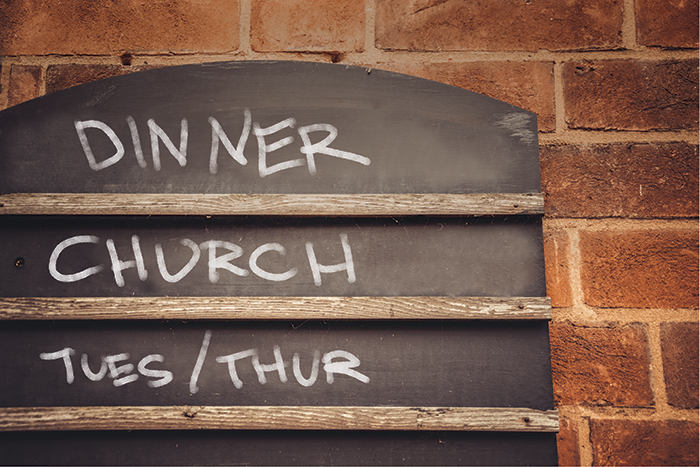 DINNER
CHURCH
TUES/THUR